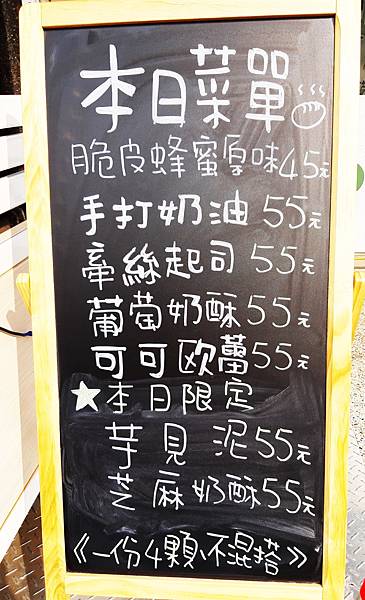 本日菜單
脆皮蜂蜜原味45元
手打奶油55元
牽絲起司55元
葡萄奶酥55元
可可欧蕾55元
★本日限定
芋見泥55元
芝麻奶酥55元
《一份4顆小不混搭》